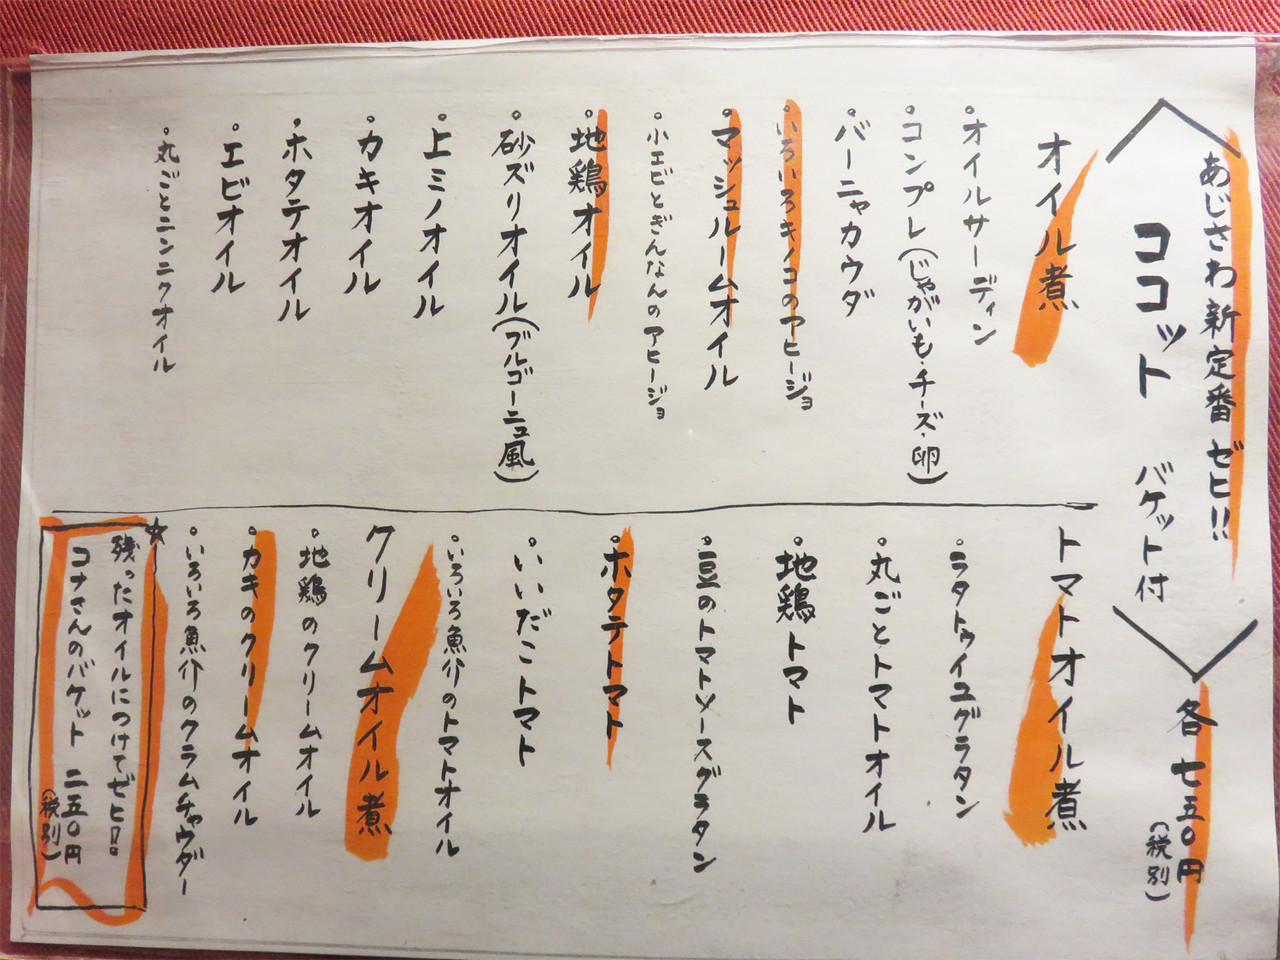 あじさわ新定番ゼヒ!!
ココット バケット付
各七五〇円
(税別)
オイル煮
・オイルサーディン
・コンプレ(じゃがいも・チーズ・卵)
・バーニャカウダ
・いろいろキノコのアヒージョ
・マッシュルームオイル
・小エビとぎんなんのアヒージョ
・地鶏オイル
・砂ズリオイル(ブルゴーニュ風)
・上ミノオイル
・カキオイル
・ホタテオイル
・エビオイル
・丸ごとニンニクオイル
トマトオイル煮
・ラタトゥイユグラタン
・丸ごとトマトオイル
・地鶏トマト
・豆のトマトソースグラタン
・ホタテトマト
・いいだこトマト
・いろいろ魚介のトマトオイル
クリームオイル煮
・地鶏のクリームオイル
・カキのクリームオイル
・いろいろ魚介のクラムチャウダー
☆
残ったオイルにつけてゼヒ!!
コナさんのバケット 二五〇円
(税別)